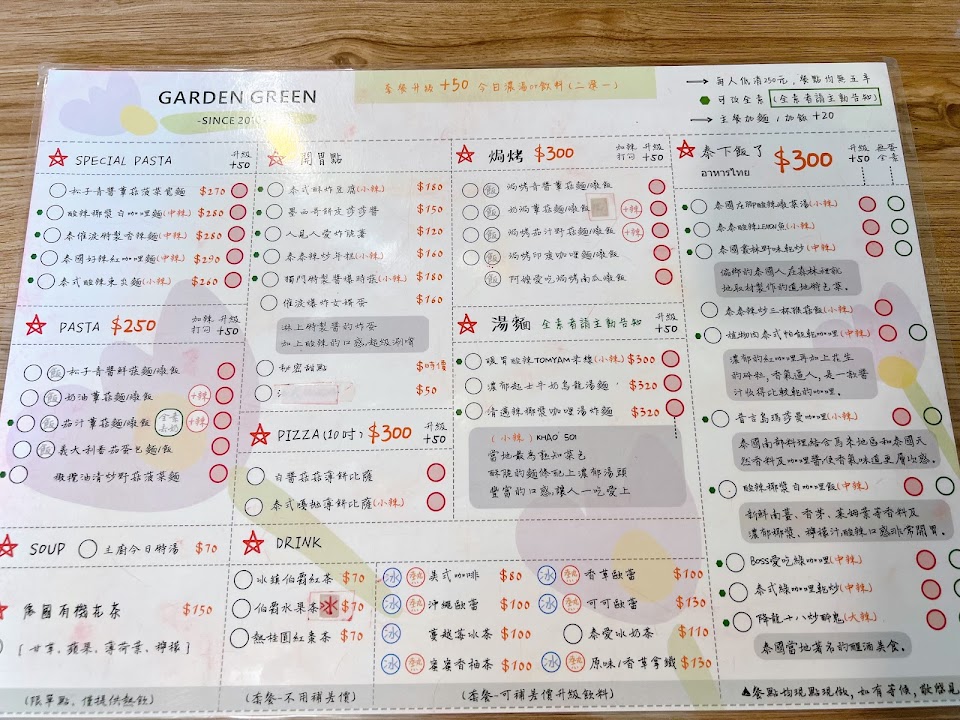 GARDEN GREEN
-SINCE 2010-
套餐升級 +50 今日濃湯or飲料(二選一)
每人低消250元，餐點均無五辛
可改全素 (全素者請主動告知)
主餐加麵/加飯 +20
SPECIAL PASTA 升級 +50
松子青醬蕈菇菠菜寬麵 $270
酸辣椰漿白咖哩麵(中辣) $280
泰催淚特製香辣麵(中辣) $280
泰國好辣紅咖哩麵(中辣) $290
泰式酸辣冬炎麵(小辣) $260
PASTA $250 加辣打勾 升級 +50
飯 松子青醬鮮菇麵/燉飯
飯 奶油蕈菇麵/燉飯 +辣
飯 茄汁蕈菇麵/燉飯 +辣
飯 義大利香茄蛋包麵/飯
橄欖油清炒野菇菠菜麵
SOUP 主廚今日特湯 $70
有機花茶 $150
[甘草、蘋果、薄荷葉、檸檬]
(限單點、僅提供熱飲)
開胃點
泰式酥炸豆腐(小辣) $180
墨西哥餅皮莎莎醬 $150
人見人愛炸脆薯 $120
泰泰辣炒年糕(小辣) $160
獨門特製醬爆時蔬(小辣) $180
催淚爆炸女婿蛋 $160
淋上特製醬的炸蛋
加上酸辣的口感，超級涮嘴
秘密甜點 $時價
$50
PIZZA(10吋) $300 升級 +50
白醬菇菇薄餅比薩
泰式嘎拋薄餅比薩(小辣)
DRINK
冰鎮伯爵紅茶 $70
伯爵水果茶 $70
熱桂圓紅棗茶 $70
(套餐-不用補差價)
冰 熱 美式咖啡 $80
冰 熱 沖繩歐蕾 $100
冰 蔓越莓冰茶 $100
冰 熱 蜜蜜香柚茶 $100
冰 熱 香草歐蕾 $100
冰 熱 可可歐蕾 $130
泰愛冰奶茶 $110
冰 熱 原味/香草拿鐵 $130
(套餐-可補差價升級飲料)
焗烤 $300 加辣打勾 升級 +50
飯 焗烤青醬蕈菇麵/燉飯
飯 奶焗蕈菇麵/燉飯 +辣
飯 焗烤茄汁野菇麵/燉飯 +辣
飯 焗烤印度咖哩麵/燉飯
飯 阿嬤愛吃焗烤南瓜燉飯
湯麵 全素者請主動告知 升級 +50
暖胃酸辣TOMYAM米線(小辣) $300
濃郁起士牛奶烏龍湯麵 $320
清邁辣椰漿咖哩湯炸麵 $320
(小辣) KHAO SOI
當地最為熟知菜色
酥脆的麵條配上濃郁湯頭
豐富的口感，讓人一吃愛上
泰下飯了 $300 升級 +50 無蛋全素
อาหารไทย
泰國左腳酸辣燉菜湯(小辣)
泰泰酸辣LEMON魚(小辣)
泰國叢林野味乾炒(中辣)
偏鄉的泰國人在森林裡能
地取材製作的道地特色菜。
泰泰辣炒三杯猴菇飯(小辣)
植物肉泰式帕能乾咖哩(中辣)
濃郁的紅咖哩再加上花生
的碎粒，香氣逼人，是一款醬
汁恰得比較乾的咖哩。
昔言烏瑪莎曼咖哩(小辣)
泰國南部料理結合馬來地區和泰國天
然香料及咖哩醬，使香氣味道更層次感。
酸辣椰漿白咖哩飯(中辣)
新鮮南薑、香茅、萊姆葉等香料及
濃郁椰漿、檸檬汁，酸辣口感非常開胃。
BOSS愛吃綠咖哩(中辣)
泰式綠咖哩乾炒(中辣)
降龍十八炒醉鬼(大辣)
泰國當地著名的醒酒美食。
▲餐點均現點現做，如有等候，敬請見